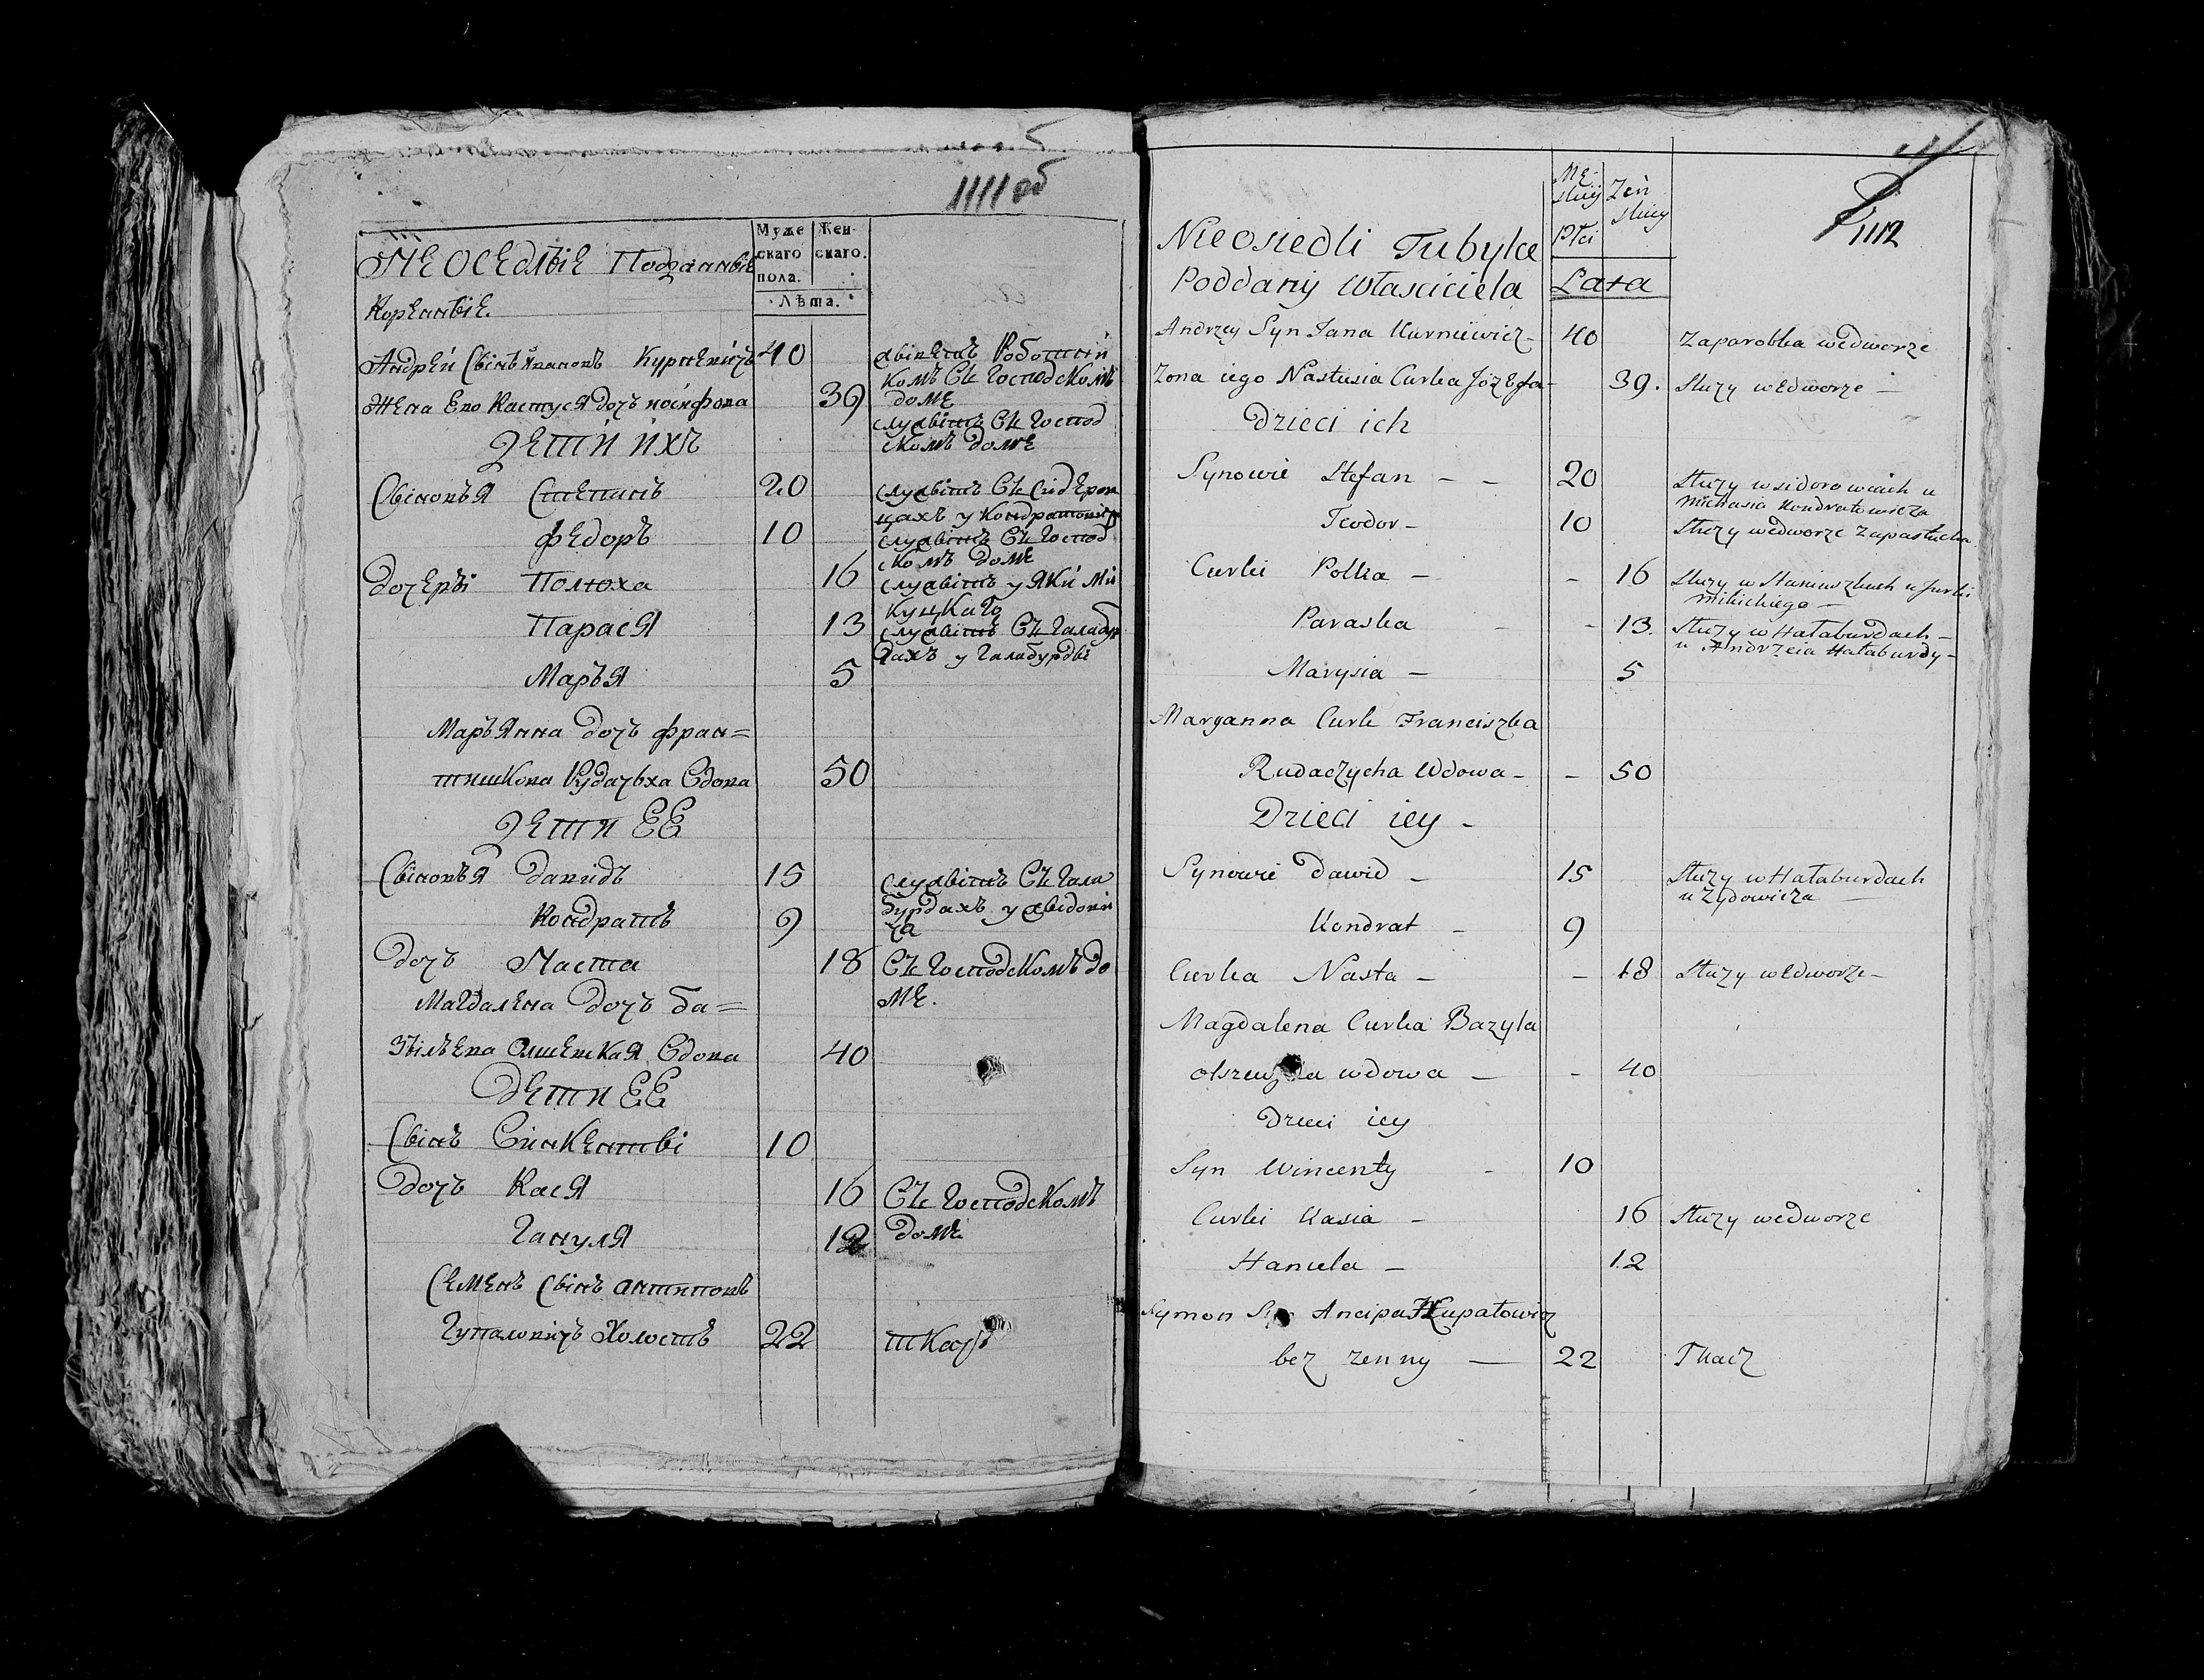 1111 об
Муже
скаго
пола.
Жен-
скаго.
Лѣта.
НЕОСЕДЛЫЕ Подданные
Коренные.
Андрей Сынъ Ивановъ Курневичъ 40 живетъ Работни
комъ Въ Господскомъ
Жена Его Настуся дочъ иосифова 39 доме
служитъ Въ Господ
Дети ихъ скомъ доме
Сыновья Степанъ 20 служитъ Въ Сидеров
цахъ у Кондратовича
Федоръ 10 служитъ Въ Господ
скомъ доме
Дочеры Полюха 16 служитъ у Яки Ми
куцкаго
Парася 13 служитъ Въ Галабур
дахъ у Галабурды
Марья 5
Марьянна дочъ фран=
тишкова Рудачыха Вдова 50
Дети ЕЕ
Сыновья Давидъ 15 служитъ Въ Гала
бурдахъ у жыдови
Кондратъ 9 ча
Дочъ Наста 18 Въ Господскомъ до
ме.
Магдалена Дочъ ба=
зылева Олшевская Вдова 40
Дети ЕЕ
Сынъ Винкенты 10
Дочъ Кася 16 Въ Господскомъ
Гануля 12 доме
Семенъ Сынъ антиповъ
Гупаловичъ Холостъ 22 ткачъ
1112
Mę-
skiy
Płci
Zeń
skiey
Lata
Nieosiedli Tubylce
Poddany Własciciela
Andrzey Syn Jana Kurniewicz - 40 Zaparobka wedworze
Zona iego Nastusia Curka Józefa - 39. Służy wedworze -
Dzieci ich
Synowie Stefan - - 20 Służy wsidorowcach u
Michasia Kondratowicza
Teodor - 10 Służy wedworze Zapastucha
Curki Polka - - 16 Służy w Staniuszkach u Jurki
Mikickiego -
Paraska - - 13. Służy w Hałaburdach -
u Andrzeia Hałaburdy -
Marysia - 5
Maryanna Curk Franciszka
Rudaczycha Wdowa - - 50
Dzieci iey -
Synowie Dawid - 15 Służy w Hałaburdach
u Zydowicza
Kondrat - 9
Curka Nasta - - 18 Służy wedworze -
Magdalena Curka Bazyla
Olszewska wdowa - - 40
Dzieci iey
Syn Wincenty - 10
Curki Kasia - 16 Służy wedworze
Hanula - 12
Symon Syn Ancipa Hupałowicz
bez zenny - 22 Tkacz